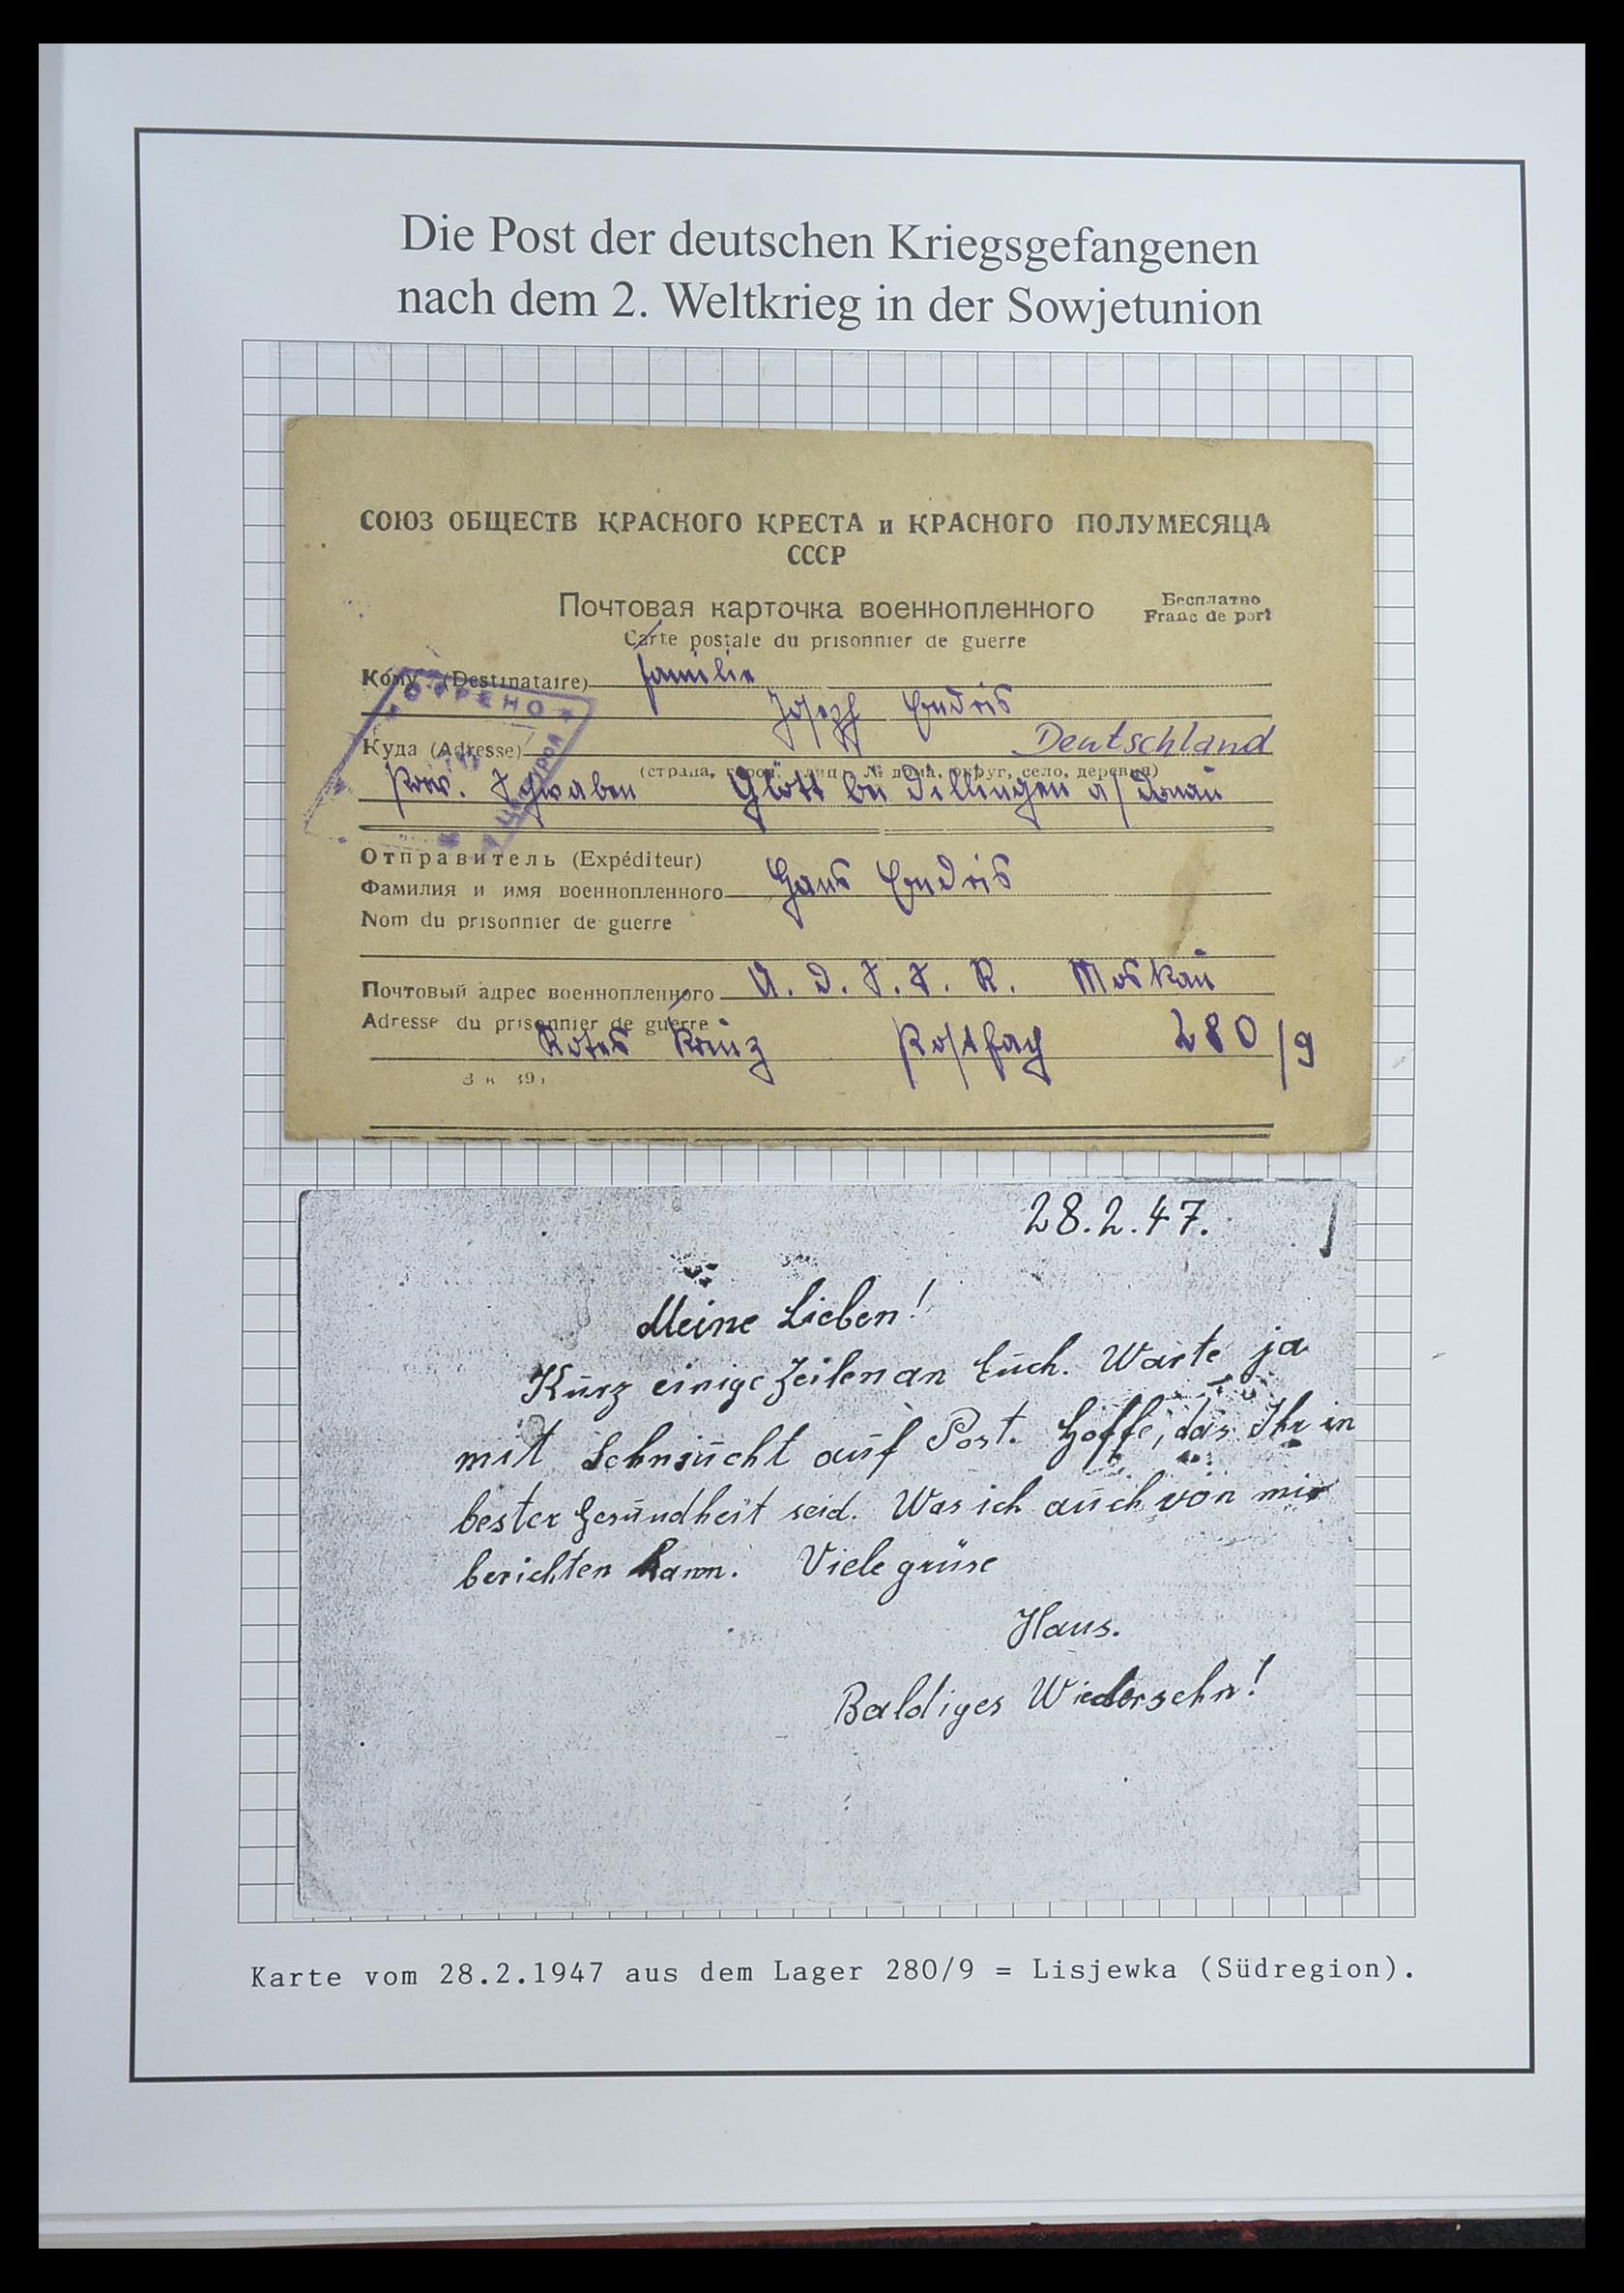 Die Post der deutschen Kriegsgefangenen
nach dem 2. Weltkrieg in der Sowjetunion
СОЮЗ ОБЩЕСТВ КРАСНОГО КРЕСТА и КРАСНОГО ПОЛУМЕСЯЦА
СССР
Почтовая карточка военнопленного
Бесплатно
Franc de port
Carte postale du prisonnier de guerre
Кому (Destinataire) Familie
Joseph Endris
Куда (Adresse) Deutschland
(страна, город, улица, № дома, округ, село, деревня)
Prov. Schwaben Glött bei Dillingen a/ Donau
Отправитель (Expéditeur)
Фамилия и имя военнопленного Hans Endris
Nom du prisonnier de guerre
Почтовый адрес военнопленного U. d. S. S. R. Moskau
Adresse du prisonnier de guerre
Rotes Kreuz Postfach 280/9
28.2.47.
Meine Lieben!
Kurz einige Zeilen an Euch. Warte ja
mit Sehnsucht auf Post. Hoffe, das Ihr in
bester Gesundheit seid. Was ich auch von mir
berichten kann. Viele grüse
Hans.
Baldiges Wiedersehn!
Karte vom 28.2.1947 aus dem Lager 280/9 = Lisjewka (Südregion).